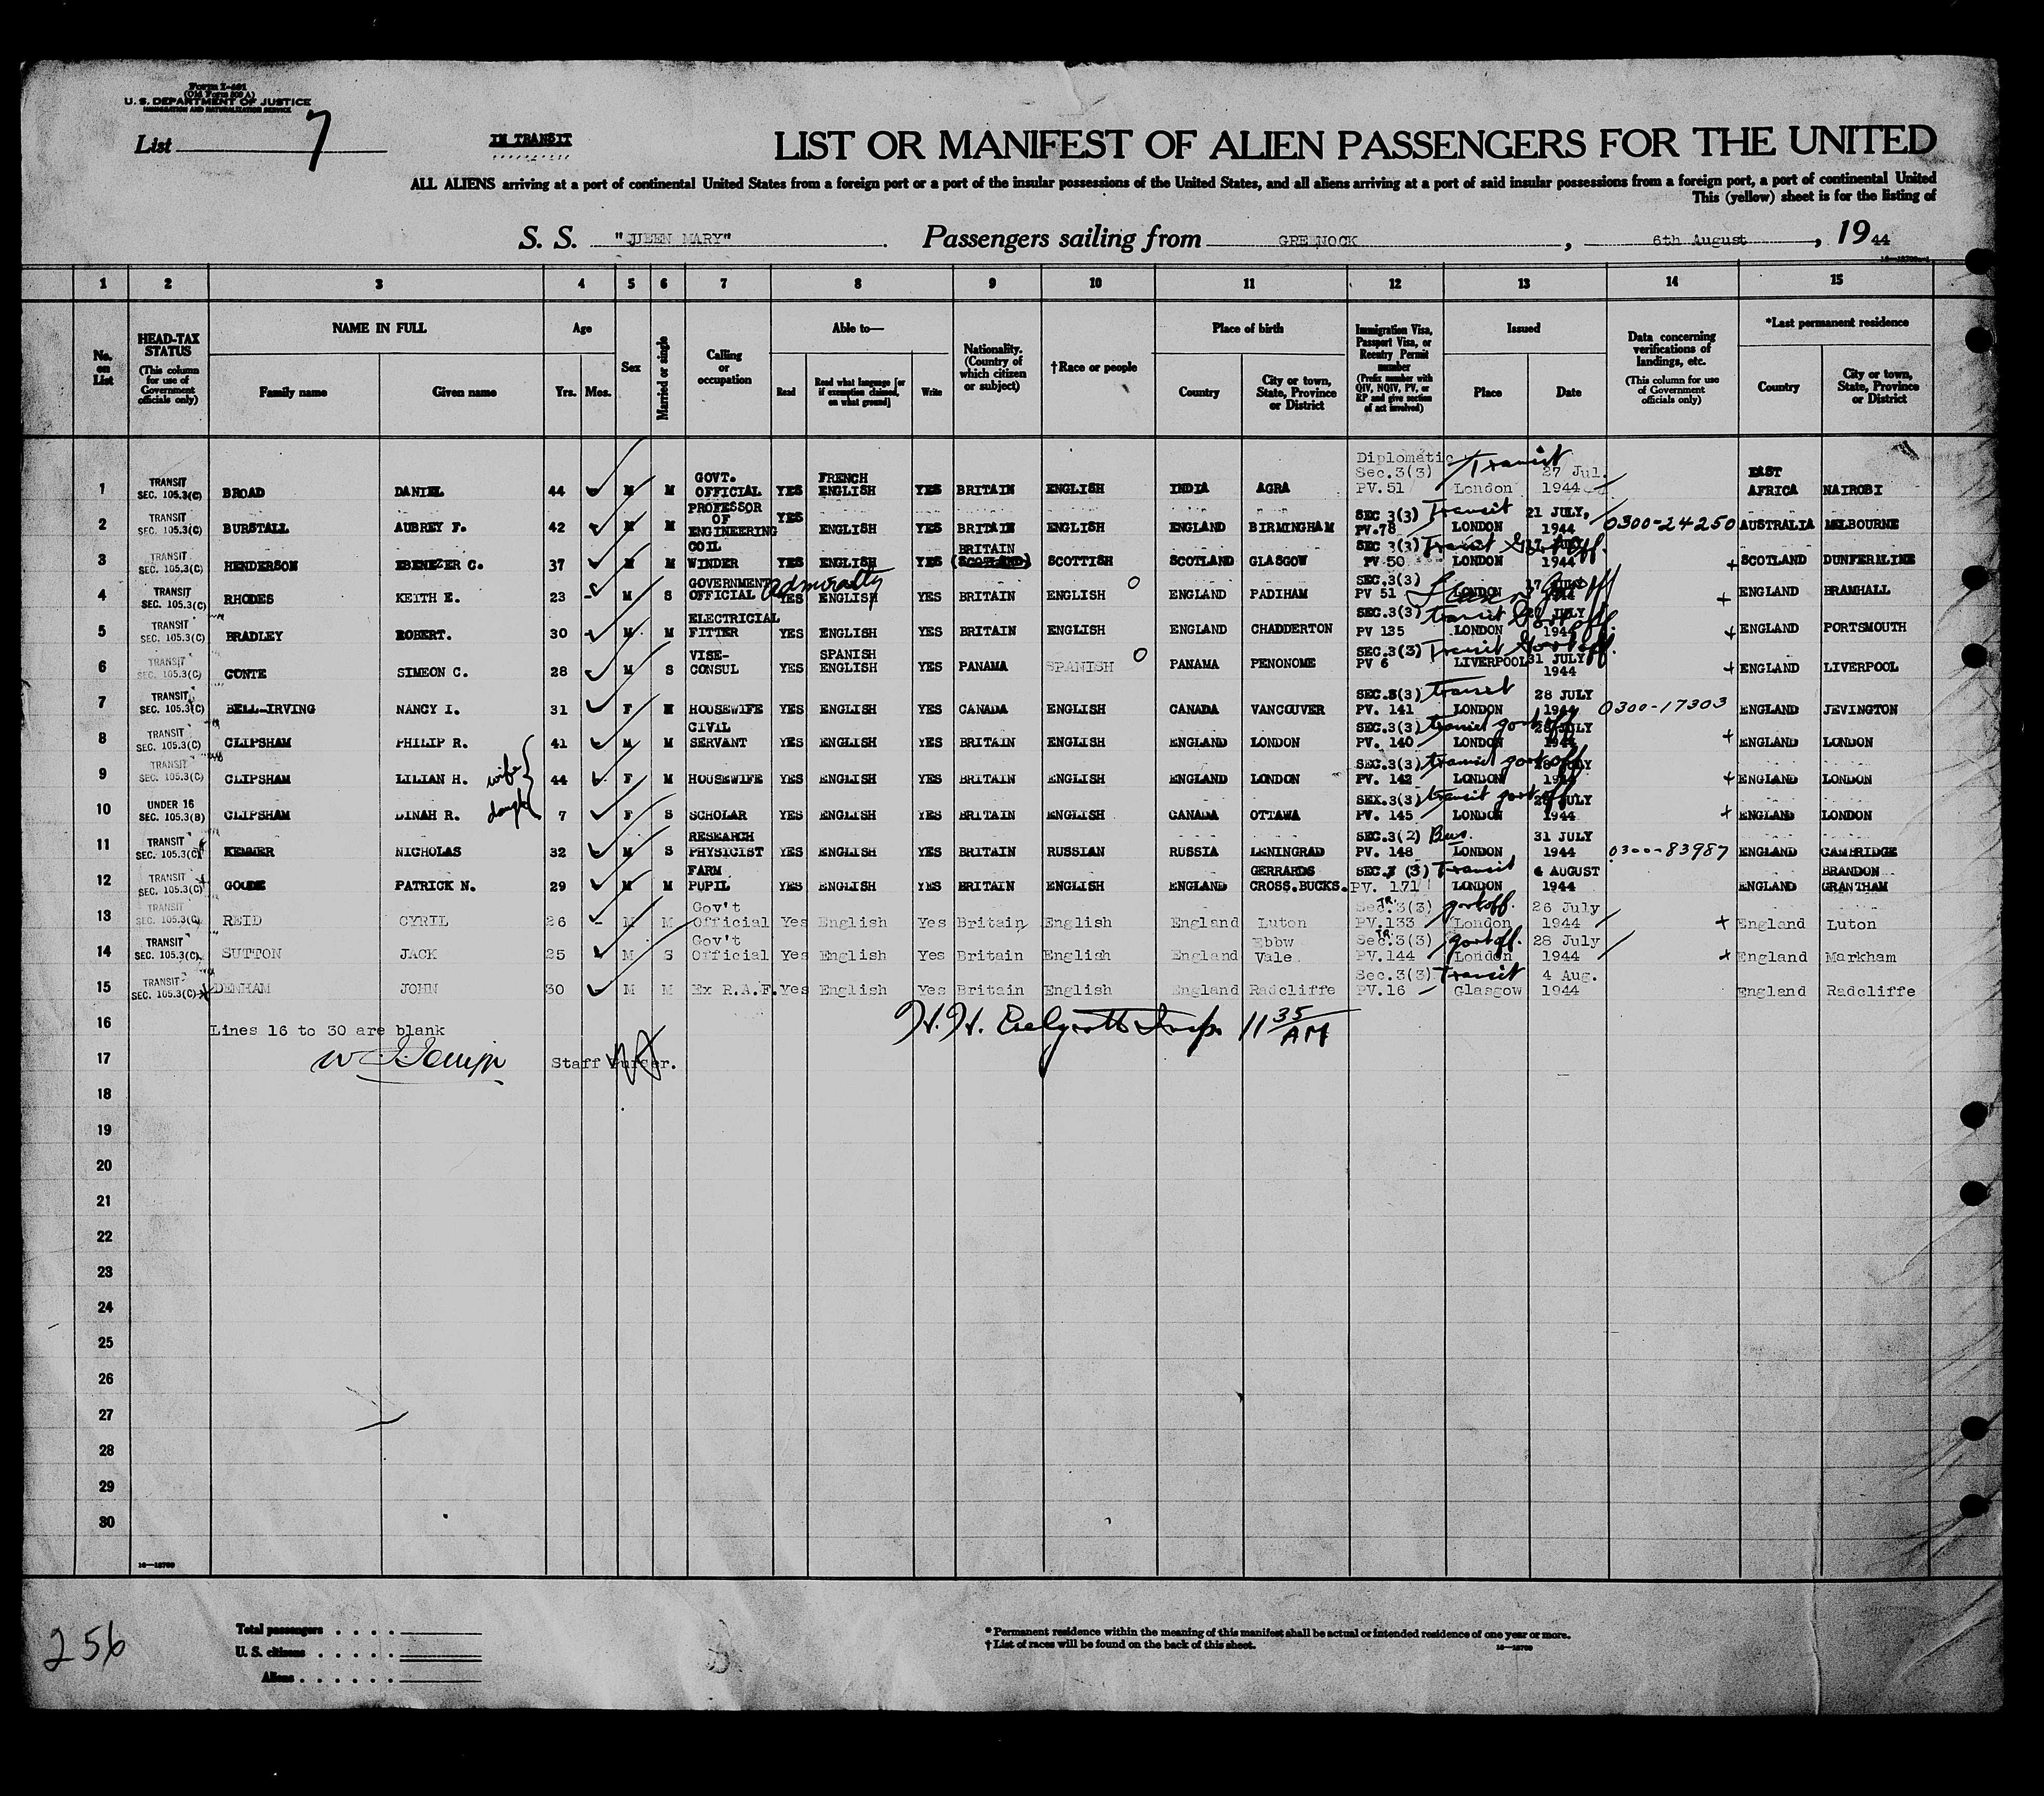 Form I-461
(Old Form 500 A)
U. S. DEPARTMENT OF JUSTICE
IMMIGRATION AND NATURALIZATION SERVICE
List 7
IN TRANSIT
LIST OR MANIFEST OF ALIEN PASSENGERS FOR THE UNITED
ALL ALIENS arriving at a port of continental United States from a foreign port or a port of the insular possessions of the United States, and all aliens arriving at a port of said insular possessions from a foreign port, a port of continental United
This (yellow) sheet is for the listing of
S. S. "QUEEN MARY" Passengers sailing from GREENOCK, 6th August, 19 44
1 2 3 4 5 6 7 8 9 10 11 12 13 14 15
No. on List
HEAD-TAX STATUS (This column for use of Government officials only)
NAME IN FULL Family name Given name
Age Yrs. Mos.
Sex
Married or single
Calling or occupation
Able to— Read Read what language [or if exemption claimed, on what ground] Write
Nationality. (Country of which citizen or subject)
†Race or people
Place of birth Country City or town, State, Province or District
Immigration Visa, Passport Visa, or Reentry Permit number (Prefix number with QIV, NQIV, PV, or RP and give section of act involved)
Issued Place Date
Data concerning verifications of landings, etc. (This column for use of Government officials only)
*Last permanent residence Country City or town, State, Province or District
1 TRANSIT SEC. 105.3(C) BROAD DANIEL 44 M M GOVT. OFFICIAL YES FRENCH ENGLISH YES BRITAIN ENGLISH INDIA AGRA Diplomatic Sec.3(3) PV.51 Transit London 27 Jul. 1944 EAST AFRICA NAIROBI
2 TRANSIT SEC. 105.3(C) BURSTALL AUBREY F. 42 M M PROFESSOR OF ENGINEERING YES ENGLISH YES BRITAIN ENGLISH ENGLAND BIRMINGHAM SEC 3(3) PV.78 Transit LONDON 21 JULY, 1944 0300-24250 AUSTRALIA MELBOURNE
3 TRANSIT SEC. 105.3(C) HENDERSON EBENEZER C. 37 M M COIL WINDER YES ENGLISH YES BRITAIN (SCOTLAND) SCOTTISH SCOTLAND GLASGOW SEC 3(3) PV 50 Transit Govt off. LONDON 17 JULY 1944 + SCOTLAND DUNFERMLINE
4 TRANSIT SEC. 105.3(C) RHODES KEITH E. 23 M S GOVERNMENT OFFICIAL admiralty YES ENGLISH YES BRITAIN ENGLISH ENGLAND PADIHAM SEC.3(3) PV 51 LONDON 17 JULY 1944 + ENGLAND BRAMHALL
5 TRANSIT SEC. 105.3(C) BRADLEY ROBERT. 30 M M ELECTRICIAL FITTER YES ENGLISH YES BRITAIN ENGLISH ENGLAND CHADDERTON SEC.3(3) PV 135 transit Govt off LONDON 27 JULY 1944 + ENGLAND PORTSMOUTH
6 TRANSIT SEC. 105.3(C) CONTE SIMEON C. 28 M S VISE-CONSUL YES SPANISH ENGLISH YES PANAMA SPANISH PANAMA PENONOME SEC.3(3) PV 6 Transit Govt off LIVERPOOL 31 JULY 1944 + ENGLAND LIVERPOOL
7 TRANSIT SEC. 105.3(C) BELL-IRVING NANCY I. 31 F M HOUSEWIFE YES ENGLISH YES CANADA ENGLISH CANADA VANCOUVER SEC.3(3) PV. 141 transit LONDON 28 JULY 1944 0300-17303 ENGLAND JEVINGTON
8 TRANSIT SEC. 105.3(C) CLIPSHAM PHILIP R. 41 M M CIVIL SERVANT YES ENGLISH YES BRITAIN ENGLISH ENGLAND LONDON SEC.3(3) PV. 140 transit govt off LONDON 28 JULY 1944 + ENGLAND LONDON
9 TRANSIT SEC. 105.3(C) CLIPSHAM LILIAN H. wife 44 F M HOUSEWIFE YES ENGLISH YES BRITAIN ENGLISH ENGLAND LONDON SEC.3(3) PV. 142 transit govt off LONDON 28 JULY 1944 + ENGLAND LONDON
10 UNDER 16 SEC. 105.3(B) CLIPSHAM DINAH R. daugh 7 F S SCHOLAR YES ENGLISH YES BRITAIN ENGLISH CANADA OTTAWA SEX.3(3) PV. 145 transit govt off LONDON 28 JULY 1944 + ENGLAND LONDON
11 TRANSIT SEC. 105.3(C) KEMMER NICHOLAS 32 M S RESEARCH PHYSICIST YES ENGLISH YES BRITAIN RUSSIAN RUSSIA LENINGRAD SEC.3(2) PV. 148 Bus. LONDON 31 JULY 1944 0300-83987 ENGLAND CAMBRIDGE
12 TRANSIT SEC. 105.3(C) GOUDE PATRICK N. 29 M M FARM PUPIL YES ENGLISH YES BRITAIN ENGLISH ENGLAND GERRARDS CROSS.BUCKS. SEC. (3) PV. 171 Transit LONDON 4 AUGUST 1944 ENGLAND BRANDON GRANTHAM
13 TRANSIT SEC. 105.3(C) REID CYRIL 26 M M Gov't Official Yes English Yes Britain English England Luton Sec.3(3) PV.133 TR. govt off. London 26 July 1944 + England Luton
14 TRANSIT SEC. 105.3(C) SUTTON JACK 25 M S Gov't Official Yes English Yes Britain English England Ebbw Vale Sec.3(3) PV.144 TR. govt off. London 28 July 1944 + England Markham
15 TRANSIT SEC. 105.3(C) DENHAM JOHN 30 M M Ex R.A.F. Yes English Yes Britain English England Radcliffe Sec.3(3) PV.16 Transit Glasgow 4 Aug. 1944 England Radcliffe
16 Lines 16 to 30 are blank 11 35 AM
17 Staff Purser.
18
19
20
21
22
23
24
25
26
27
28
29
30
16—18700
256
Total passengers
U. S. citizens
Aliens
* Permanent residence within the meaning of this manifest shall be actual or intended residence of one year or more.
† List of races will be found on the back of this sheet. 16—18700